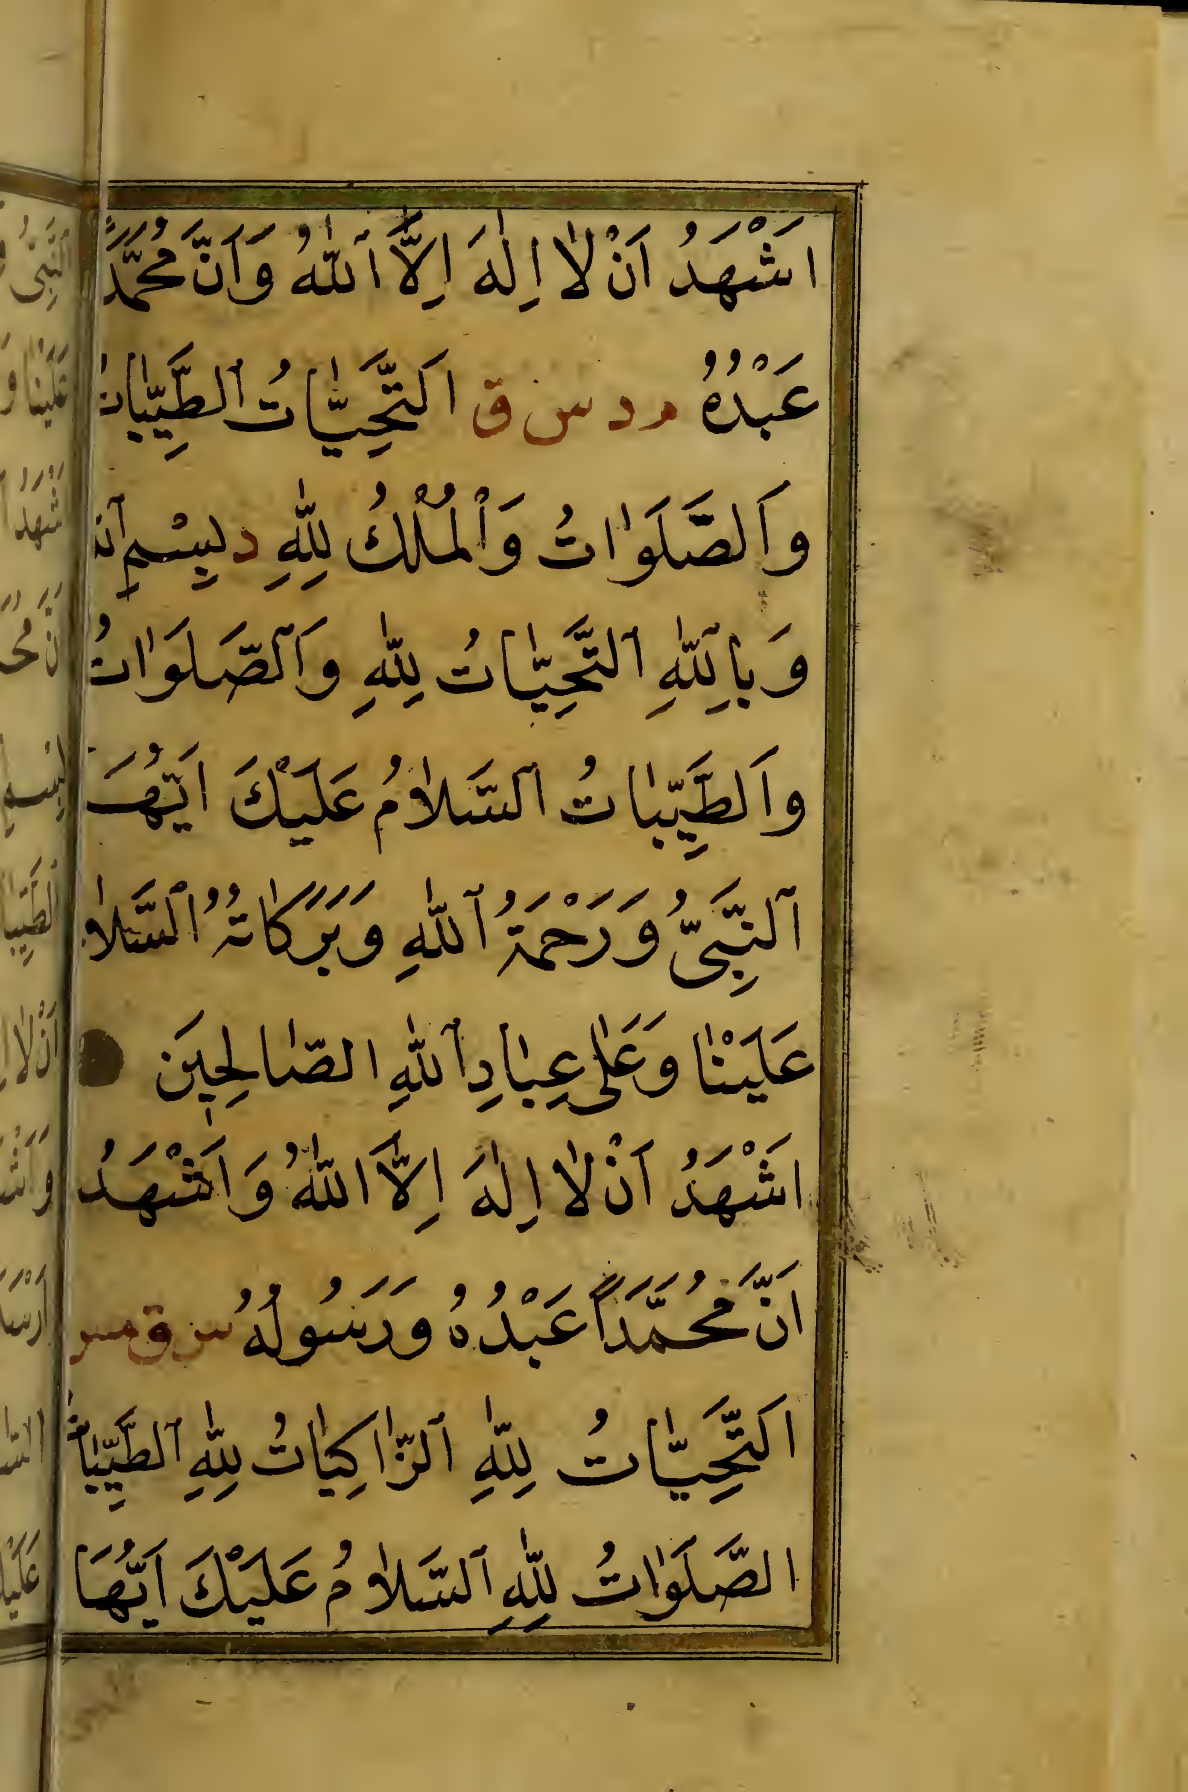 اَشْهَدُ اَنْ لَا اِلٰهَ اِلَّا اللّٰهُ وَاَنَّ مُحَمَّدًا
عَبْدُهُ م د س ق اَلتَّحِيَّاتُ الطَّيِّبَاتُ
وَالصَّلَوَاتُ وَالْمُلْكُ لِلّٰهِ د بِسْمِ اللّٰهِ
وَبِاللّٰهِ التَّحِيَّاتُ لِلّٰهِ وَالصَّلَوَاتُ
وَالطَّيِّبَاتُ السَّلَامُ عَلَيْكَ اَيُّهَا
النَّبِيُّ وَرَحْمَةُ اللّٰهِ وَبَرَكَاتُهُ السَّلَامُ
عَلَيْنَا وَعَلٰى عِبَادِ اللّٰهِ الصَّالِحِينَ
اَشْهَدُ اَنْ لَا اِلٰهَ اِلَّا اللّٰهُ وَاَشْهَدُ
اَنَّ مُحَمَّدًا عَبْدُهُ وَرَسُولُهُ س ق مس
اَلتَّحِيَّاتُ لِلّٰهِ الزَّاكِيَاتُ لِلّٰهِ الطَّيِّبَاتُ
الصَّلَوَاتُ لِلّٰهِ السَّلَامُ عَلَيْكَ اَيُّهَا